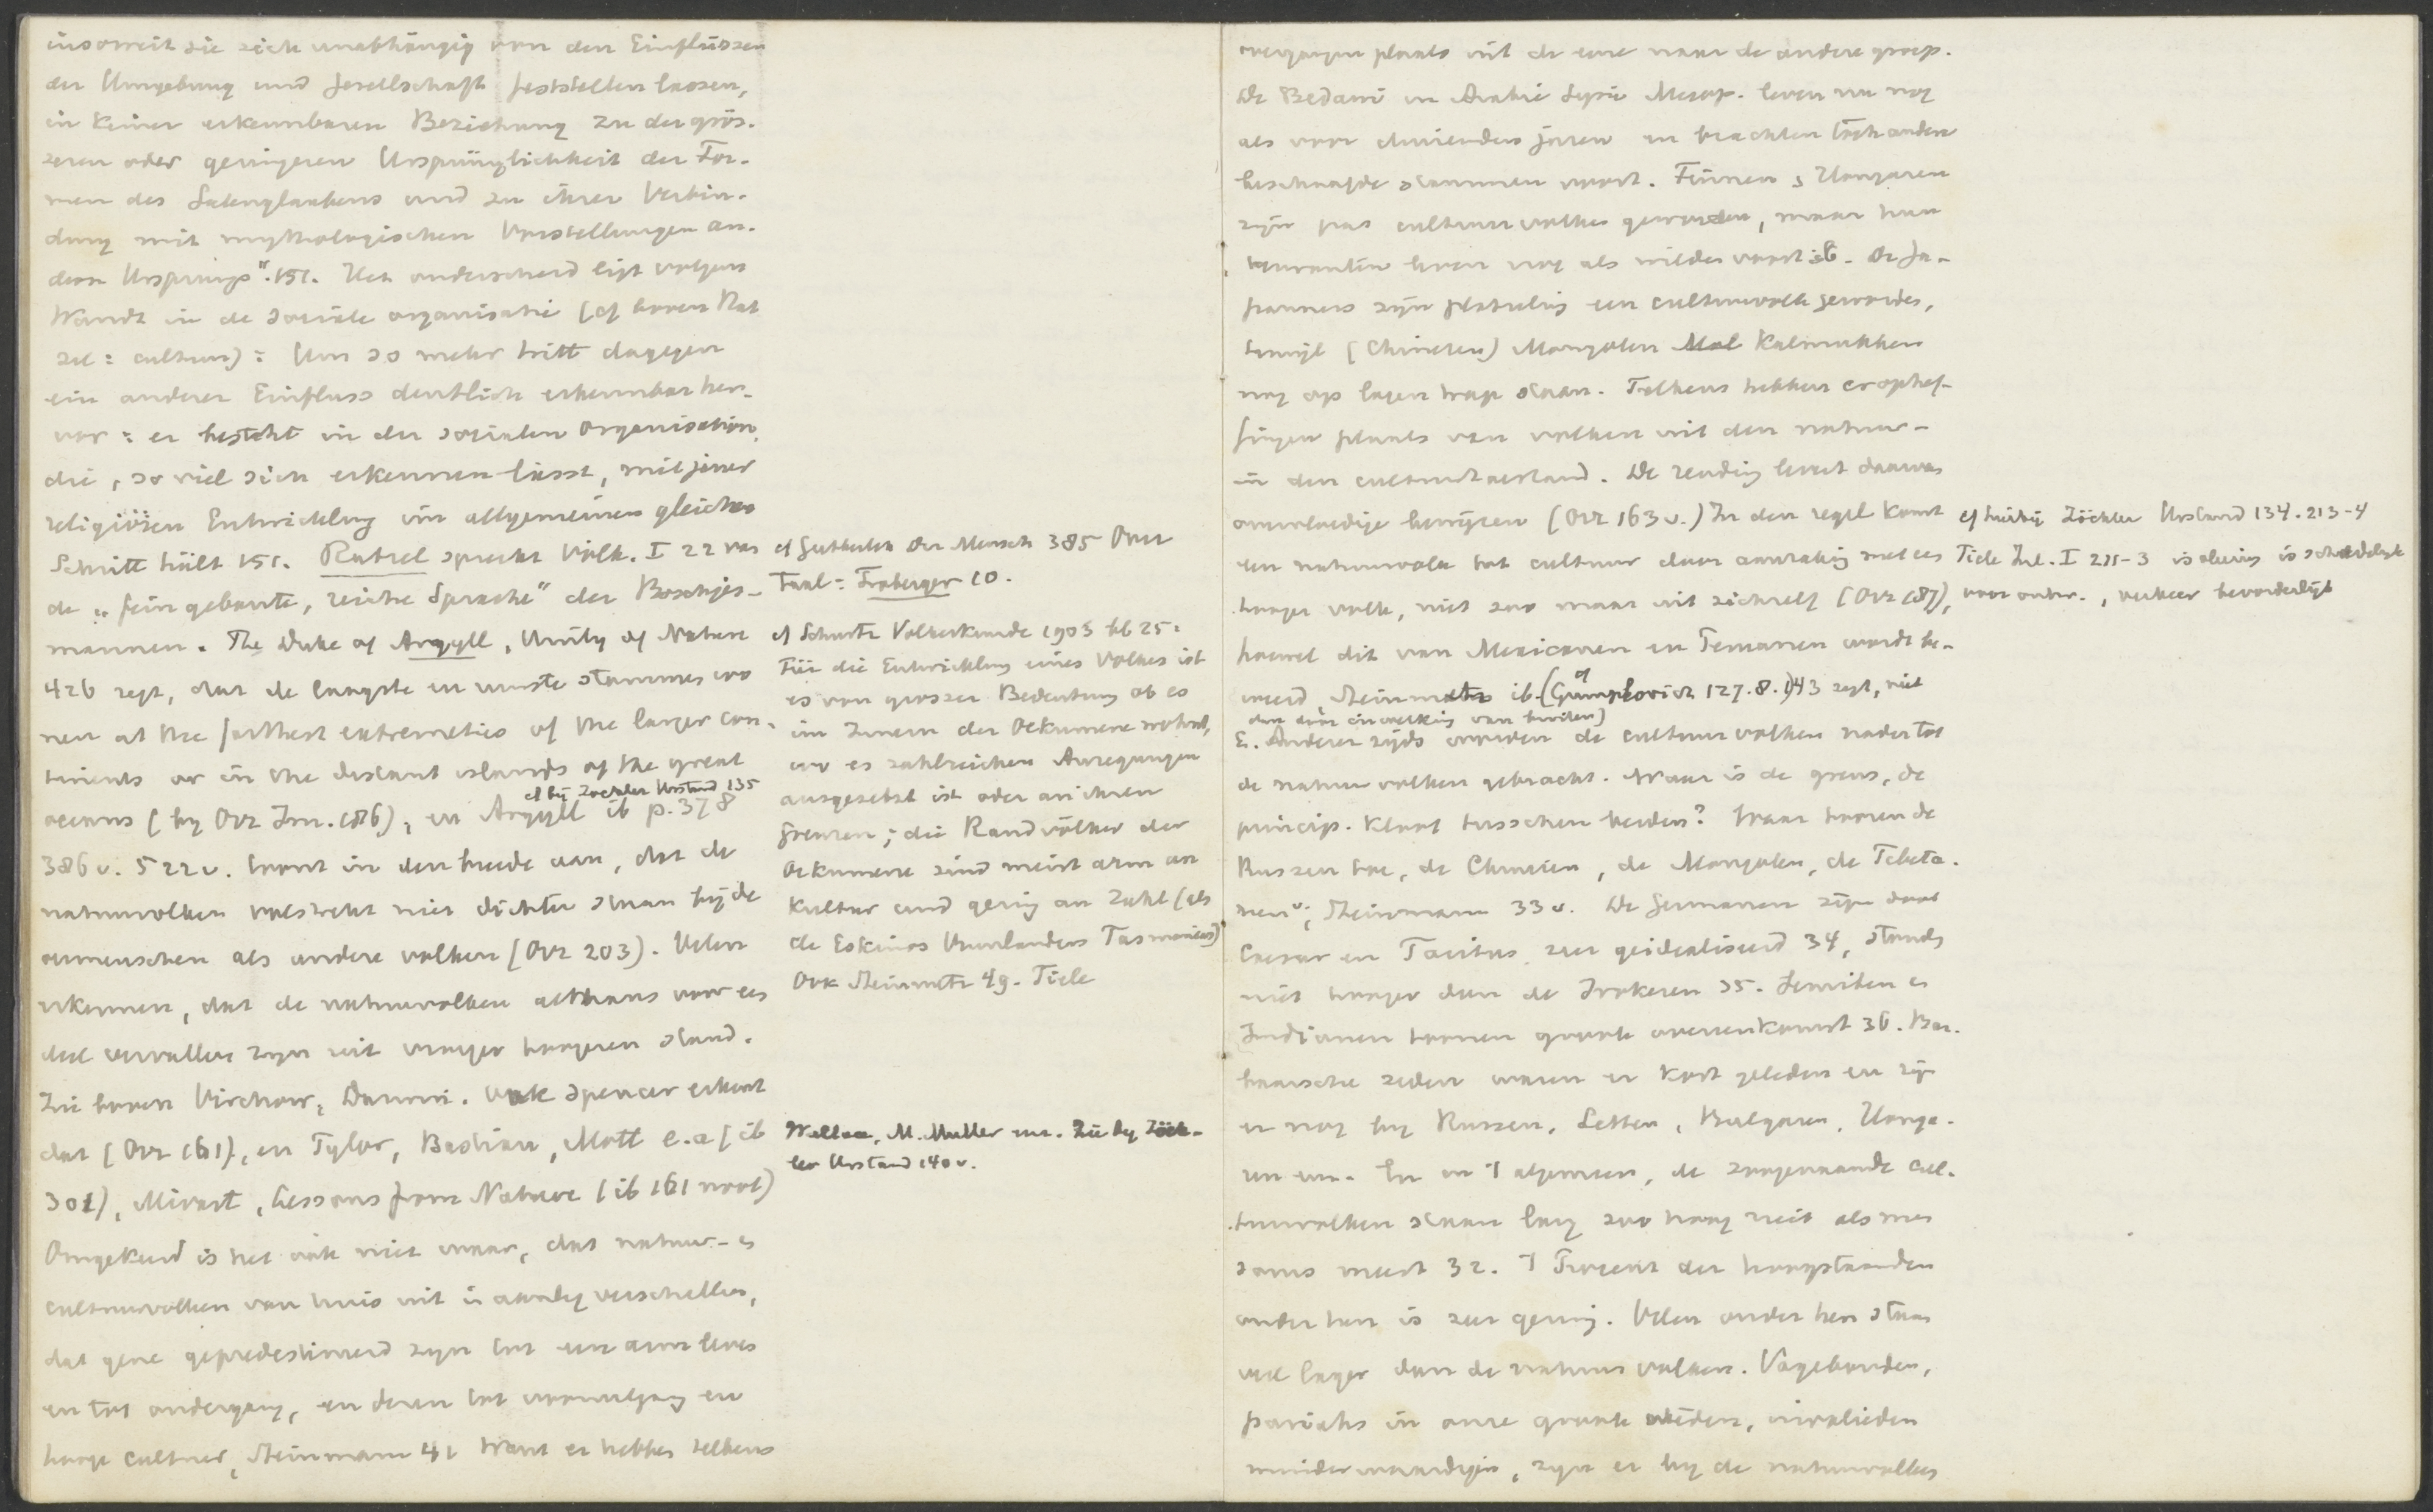 insoweit sie sich unabhängig von den Einflüssen
der Umgebung und Gesellschaft feststellen lassen,
in keiner erkennbaren Beziehung zu der grös-
seren oder geringeren Ursprünglichkeit der For-
men des Seelenglaubens und zu ihrer Verbin-
dung mit mythologischen Vorstellungen an-
dern Ursprungs". 151. Het onderscheid ligt volgens
Wundt in de sociale organisatie (cf boven Rat
zel: cultuur): Um so mehr tritt dagegen
ein anderer Einfluss deutlich erkennbar her-
vor: er besteht in der socialen Organisation,
die, so viel sich erkennen lässt, mit jener
religiösen Entwicklung im allgemeinen gleichen
Schritt hält 151. Ratzel spreekt Völk. I 22 van
de "fein gebaute, reiche Sprache" der Boschjes-
mannen. The Duke of Argyll, Unity of Nature
426 zegt, dat de laagste en stammen
at the farthest extremeties of the larger con-
tinents or in the distant islands of the great
cf bij Zöckler Urstand 135
oceans (by Ovz 186), en Argyll ib p. 378
386 v. 522 v. toont in den breede aan, dat de
natuurvolken volstrekt niet dichter staan bij de
oermenschen als andere volken (Ovz 203). Velen
erkennen, dat de natuurvolken althans voor een
deel vervallen zijn uit vroeger hoogeren stand.
Zie boven Virchow, Darwin. Ook Spencer erkent
dat (Ovz 161), en Tylor, Bastian, Mott e.a (ib
301), Mivart, Lessons from Nature (ib 161 noot)
Omgekeerd is het ook niet waar, dat natuur- en
cultuurvolken van huis uit in aanleg verschillen,
dat gene gepredestineerd zijn tot een arm leven
en tot ondergang, en dezen tot vooruitgang en
hooge cultuur, Steinmann 41 Want er hebben telkens
cf Gutberlet Der Mensch 385 Over
Taal: Froberger 10.
cf Schurtz Völkerkunde 1903 bl 25:
Für die Entwicklung eines Volkes ist
es von grosser Bedeutung ob es
im Innern der Oekumene wohnt,
wo es zahlreichen Anregungen
ausgesetzt ist oder an ihren
Grenzen; die Randvölker der
Oekumene sind meist arm an
Kultur und gering an Zahl (als
de Eskimos Vuurlanders Tasmaniers)
Ook Steinmetz 49. Tiele
Wallace, M. Müller enz. Zie bij Zöck-
ler Urstand 140 v.
overgangen plaats uit de eene naar de andere groep.
De Bedawi in Arabie Syrie Mesop. leven nu nog
als voor duizenden jaren en brachten toch andere
beschaafde stammen voort. Finnen en Hongaren
zijn pas cultuurvolken geworden, maar hun
verwanten leven nog als wilden voort ib. De Ja-
panners zijn plotseling een cultuurvolk geworden,
terwijl (Chineezen) Mongolen Kalmukken
nog op lagen trap staan. Telkens hebben er ophef-
fingen plaats van volken uit den natuur-
in den cultuurtoestand. De zending levert daarvan
overvloedige bewijzen (Ovz 163 v.) In den regel komt
een natuurvolk tot cultuur door aanraking met een
hooger volk, niet zoo maar uit zichzelf (Ovz 187),
hoewel dit van Mexicanen en Peruanen wordt be-
weerd, Steinmetz ib. (cf Gumplovicz 127.8. 143 zegt, niet
dan door inwerking van buiten)
E. Anderer zijds worden de cultuurvolken nader tot
de natuurvolken gebracht. Waar is de grens, de
princip. kloof tusschen beiden? Waar hooren de
Russen toe, de Chinezen, de Mongolen, de Tibeta-
nen; Steinmann 33 v. De Germanen zijn door
Caesar en Tacitus zeer geidealiseerd 34, stonden
niet hooger dan de Irokezen 35. Semiten en
Indianen toonen groote overeenkomst 36. Bar-
baarsche zeden waren er kort geleden en zijn
er nog bij Russen, Letten, Bulgaren, Honga-
ren enz. En in 't algemeen, de zoogenaamde cul-
tuurvolken staan lang zoo hoog niet als men
soms meent 32. 't Procent der hoogstaanden
onder hen is zeer gering. Velen onder hen staan
veel lager dan de natuurvolken. Vagebonden,
pariahs in onze groote steden,
minderwaardigen, zijn er bij de natuurvolken
cf hierbij Zöckler Urstand 134. 213-4
Tiele Inl. I 211-3 isoleering is schadelijk
voor ontw., verkeer bevorderlijk